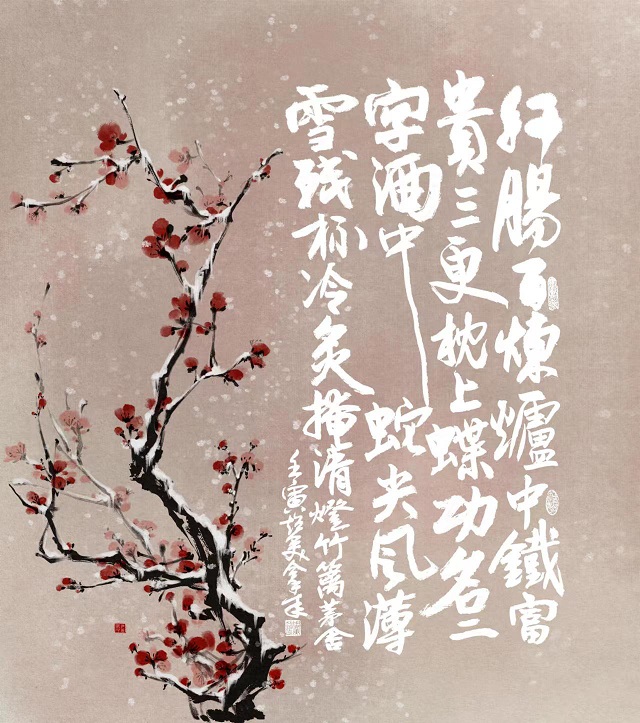 肝腸百煉爐中鐵富
貴三更枕上蝶功名二
字酒中蛇尖风薄
雪残杯冷炙掩清燈竹篱茅舍
壬寅